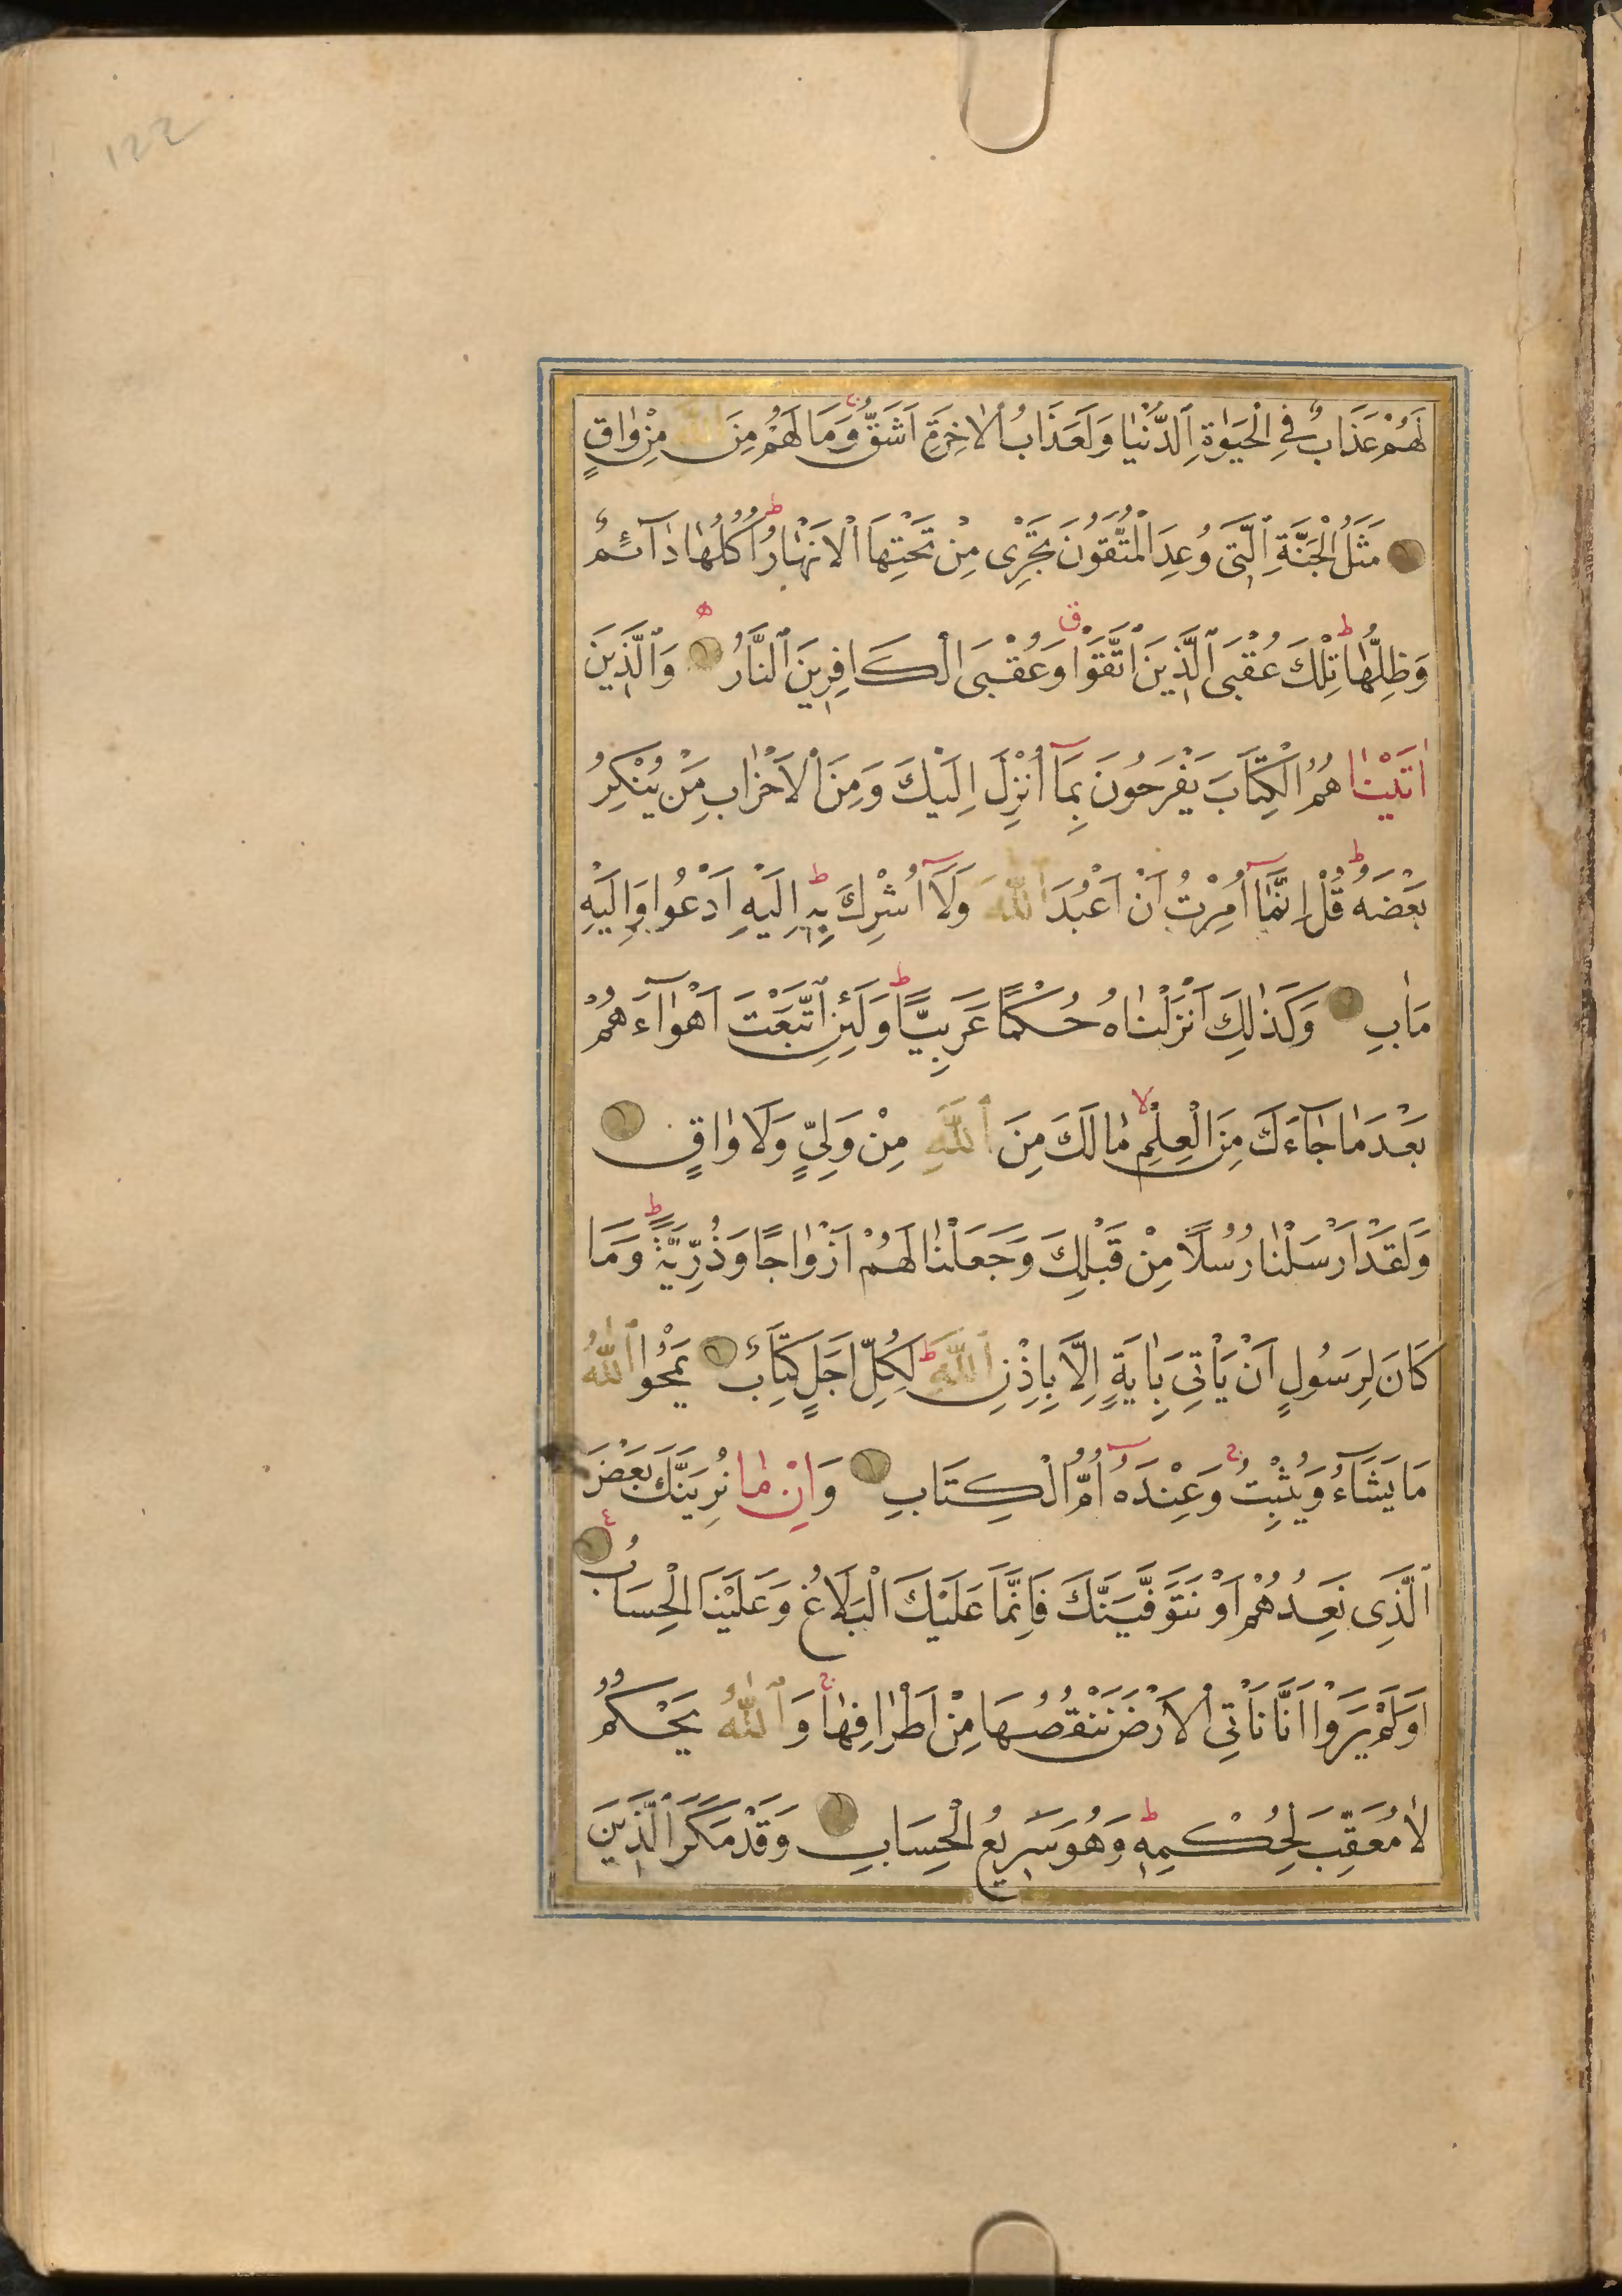 122
لَهُمْ عَذَابٌ فِي الْحَيٰوةِ ٱلدُّنْيَا وَلَعَذَابُ الْاٰخِرَةِ اَشَقُّ ۚ وَمَا لَهُمْ مِنَ ٱللّٰهِ مِنْ وَاقٍ
مَثَلُ الْجَنَّةِ ٱلَّتِي وُعِدَ الْمُتَّقُونَ تَجْرِى مِنْ تَحْتِهَا الْاَنْهَارُ ط اُكُلُهَا دَآئِمٌ
وَظِلُّهَا ط تِلْكَ عُقْبَى ٱلَّذِينَ ٱتَّقَوْا ق وَعُقْبَى الْكَافِرِينَ ٱلنَّارُ ه وَٱلَّذِينَ
اٰتَيْنَا هُمُ الْكِتَابَ يَفْرَحُونَ بِمَآ اُنْزِلَ اِلَيْكَ وَمِنَ الْاَحْزَابِ مَنْ يُنْكِرُ
بَعْضَهُ ط قُلْ اِنَّمَآ اُمِرْتُ اَنْ اَعْبُدَ ٱللّٰهَ وَلَآ اُشْرِكَ بِهٖ ط اِلَيْهِ اَدْعُوا وَاِلَيْهِ
مَاٰبِ وَكَذٰلِكَ اَنْزَلْنَاهُ حُكْمًا عَرَبِيًّا ط وَلَئِنِ ٱتَّبَعْتَ اَهْوَآءَهُمْ
بَعْدَ مَا جَآءَكَ مِنَ الْعِلْمِ لا مَا لَكَ مِنَ ٱللّٰهِ مِنْ وَلِيٍّ وَلَا وَاقٍ
وَلَقَدْ اَرْسَلْنَا رُسُلًا مِنْ قَبْلِكَ وَجَعَلْنَا لَهُمْ اَزْوَاجًا وَذُرِّيَّةً ط وَمَا
كَانَ لِرَسُولٍ اَنْ يَأْتِيَ بِاٰيَةٍ اِلَّا بِاِذْنِ ٱللّٰهِ ط لِكُلِّ اَجَلٍ كِتَابٌ يَمْحُوا ٱللّٰهُ
مَا يَشَآءُ وَيُثْبِتُ ج وَعِنْدَهُٓ اُمُّ الْكِتَابِ وَاِنْ مَا نُرِيَنَّكَ بَعْضَ
ٱلَّذِى نَعِدُهُمْ اَوْ نَتَوَفَّيَنَّكَ فَاِنَّمَا عَلَيْكَ الْبَلَاغُ وَعَلَيْنَا الْحِسَابُ ع
اَوَلَمْ يَرَوْا اَنَّا نَأْتِي الْاَرْضَ نَنْقُصُهَا مِنْ اَطْرَافِهَا ج وَٱللّٰهُ يَحْكُمُ
لَا مُعَقِّبَ لِحُكْمِهٖ ط وَهُوَ سَرِيعُ الْحِسَابِ وَقَدْ مَكَرَ ٱلَّذِينَ